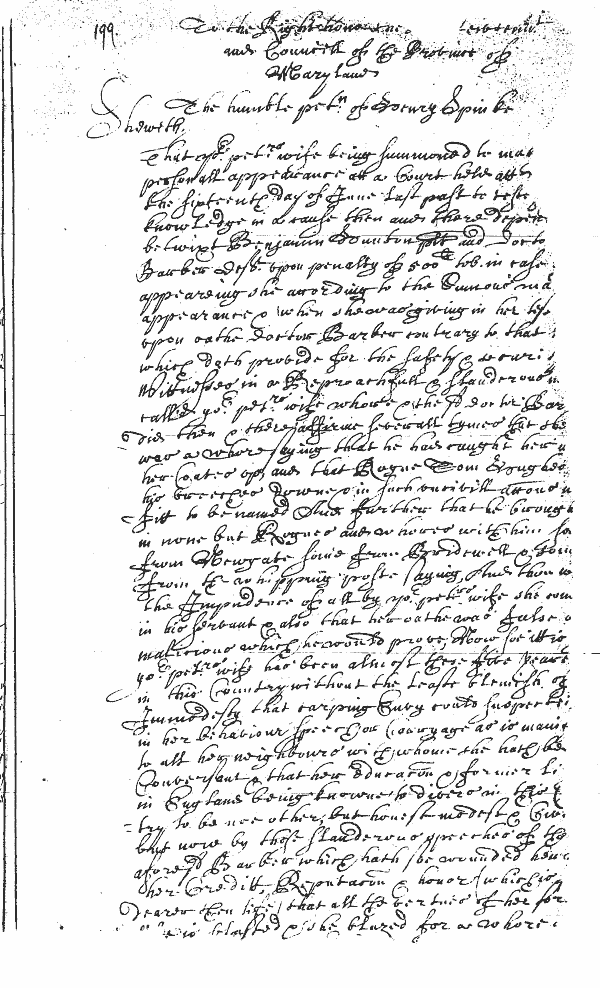 199. To the Right honou Leivtennt
and Councell of the Province of
Maryland
The humble petn. of Henry Spinke
Sheweth
That yor. petrs. wife being summoned to ma
personall appearance att a Court held att
the sixteenth day of June last past to teste
knowledge in a cause then and there depen
betwixt Benjamin Hunton plt and Docto
Barber deft. upon penalty of 500l tob. in case
appearding she according to the Sumons ma
appearance & when she was giving in her tes
upon oathe Doctor Barber contrary to that
which doth provide for the safety & securi
Wittnesses in a Reproachfull & slanderous m
called yor. petrs. wife whore & the sd doctor Bar
did then & there affirme severall tymes that she
was a whore saying that he had caught her w
her Coates up and that Rogue Tom Hughes
his breeches downe & in such uncivill as
fitt to be named And further that he brough
in none but Rogues and whores with him so
from Newgate some from Bridewell & som
from the whipping poste saying And thou
the Impudence of all by yor. petrs. wife she com
in his servant & also that her oathe was false
malicious which he would prove, Now soe itt is
yor. petrs. wife has been almost these five years
in this Country without the least blemish of
Immodesty that carping Envy could suspect
in her behaviour speech or carryage as is manif
to all her neighbours with whome she hath be
Conversant & that her Educacon & former li
in England being knowne to divers in this C
try to be noe other but honest modest & Civ
but now by those slanderous speeches of the
aforesd Barber which hath soe wounded her in
her Creditt, Reputacon & honor (which is
dearer then life) that all the vertues of her for
is blasted & she blazed for a whore